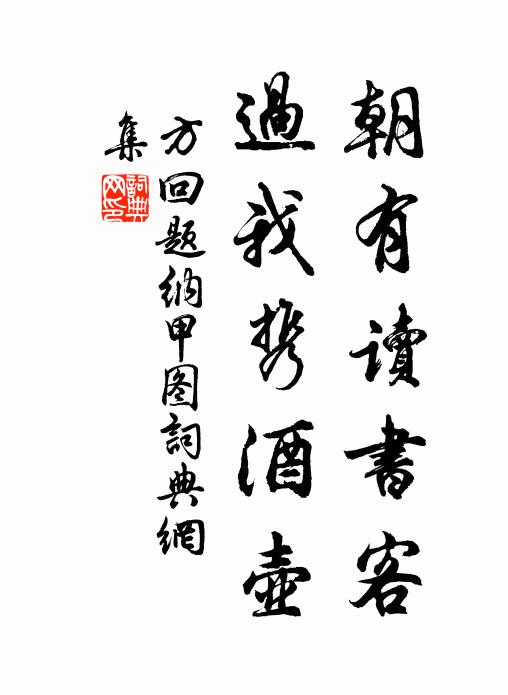 朝有讀書客
過我携酒壺
方回题納甲图詞典網
集
詞典網印